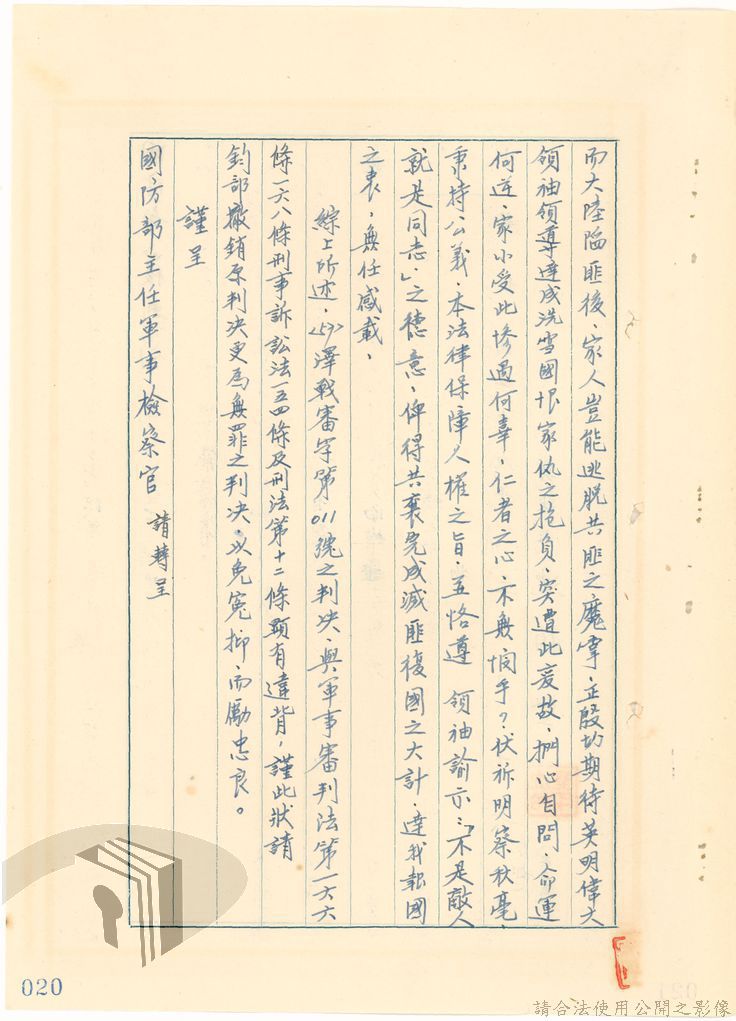 而大陸陷匪後、家人豈能逃脫共匪之魔掌、正殷切期待英明偉大
領袖領導達成洗雪國恨家仇之抱負、突遭此変故、捫心自問、命運
何逆、家小受此慘過何辜、仁者之心、不無悯乎？伏祈明察秋毫、
秉持公義、本法律保障人權之旨、並恪遵 領袖諭示：「不是敵人
就是同志」之德意、俾得共襄完成滅匪復國之大計、達我報國
之衷、無任感載、
綜上所述、澤戰審字第011號之判決、與軍事審判法第一六六
條一六八條刑事訴訟法一五四條及刑法第十二條顯有違背，謹此狀請
鈞部撤銷原判決更為無罪之判決、以免冤抑、而勵忠良。
謹呈
國防部主任軍事檢察官 請轉呈
020
請合法使用公開之影像